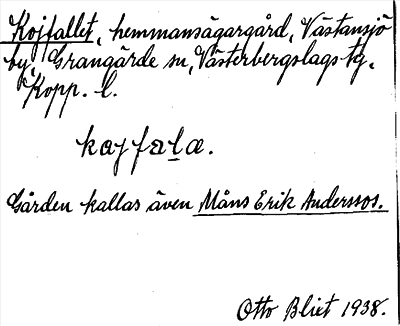 Kojfallet, hemmansägargård, Västansjö
by, Grangärde sn, Västerbergslags tg,
Kopp. l.
kajfala.
Gården kallas även Måns Erik Anderssos.
Otto Blixt 1938.